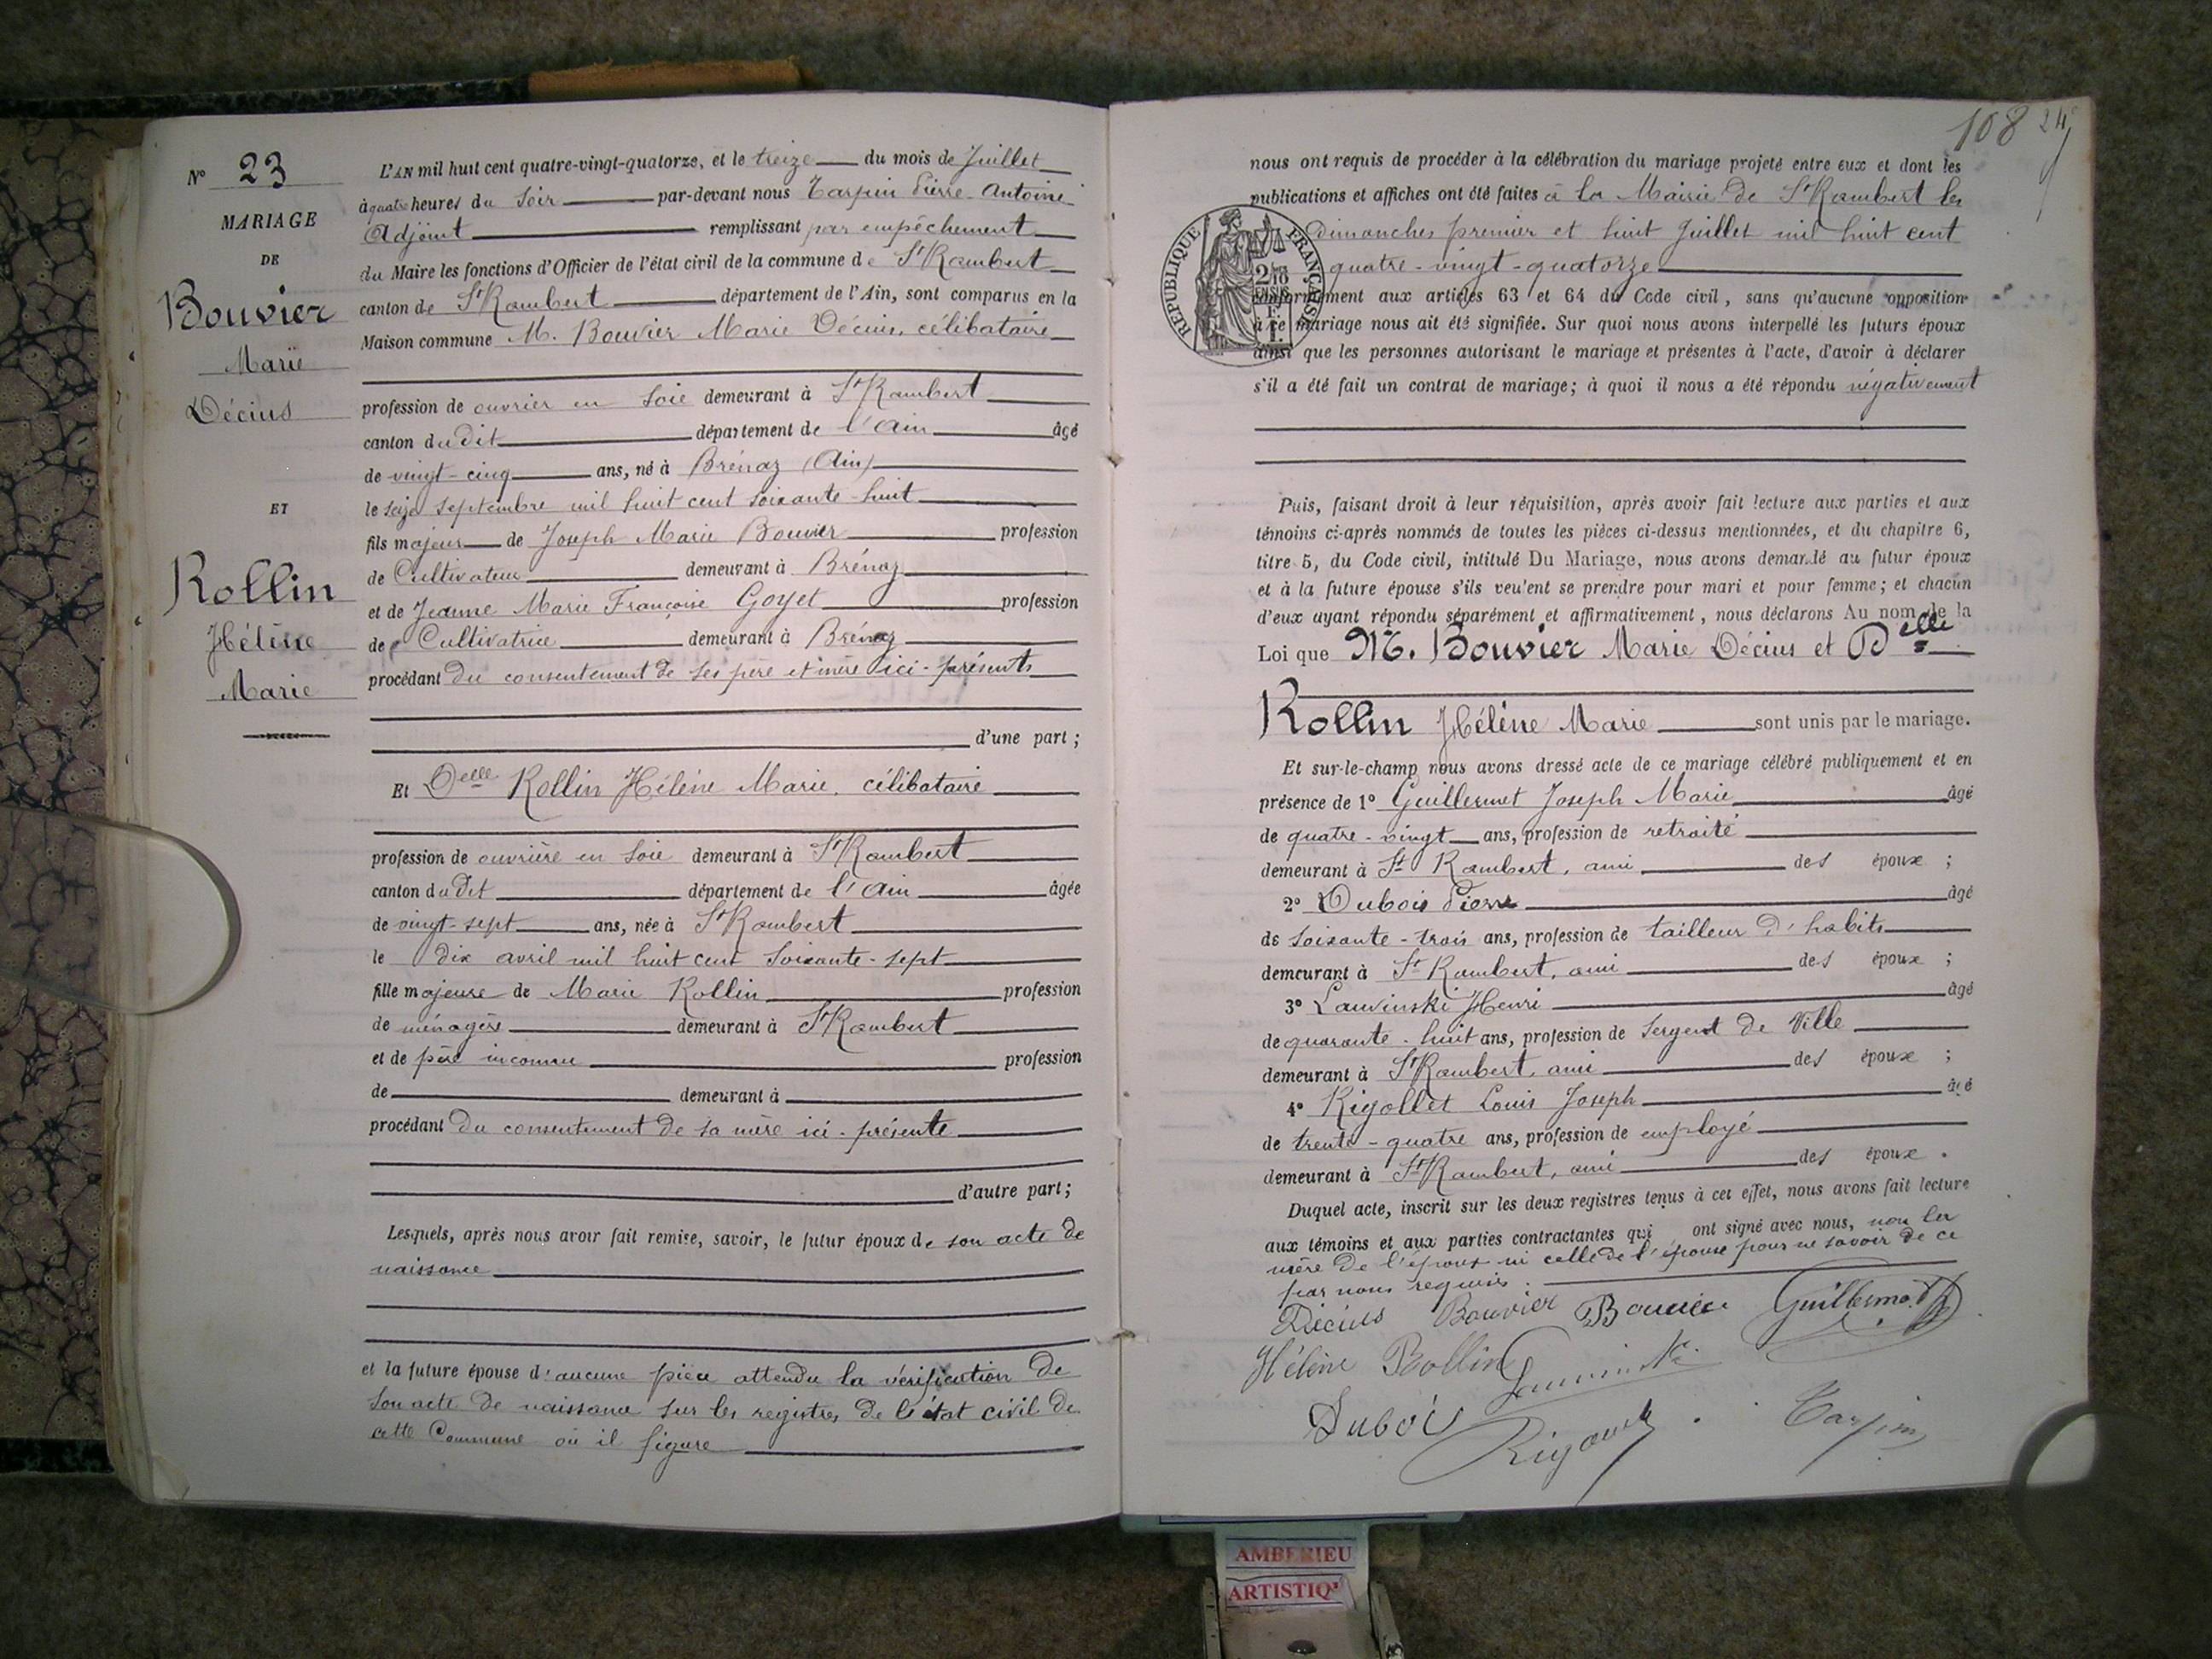 N° 23
MARIAGE
DE
Bouvier
Marie
Décius
ET
Rollin
Hélène
Marie
L'AN mil huit cent quatre-vingt-quatorze, et le treize du mois de Juillet
à quatre heures du Soir par-devant nous Tarpin Pierre-Antoine
Adjoint remplissant par empêchement
du Maire les fonctions d'Officier de l'état civil de la commune de St Rambert
canton de St Rambert département de l'Ain, sont comparus en la
Maison commune M. Bouvier Marie Décius, célibataire
profession de ouvrier en Soie demeurant à St Rambert
canton dudit département de l'Ain âgé
de vingt-cinq ans, né à Brénaz (Ain)
le seize septembre mil huit cent soixante-huit
fils majeur de Joseph Marie Bouvier profession
de Cultivateur demeurant à Brénaz
et de Jeanne Marie Françoise Goyet profession
de Cultivatrice demeurant à Brénaz
procédant du consentement de ses père et mère ici-présents
d'une part ;
Et Delle Rollin Hélène Marie, célibataire
profession de ouvrière en Soie demeurant à St Rambert
canton dudit département de l'Ain âgée
de vingt-sept ans, née à St Rambert
le dix avril mil huit cent soixante-sept
fille majeure de Marie Rollin profession
de ménagère demeurant à St Rambert
et de père inconnu profession
de demeurant à
procédant du consentement de sa mère ici-présente
d'autre part ;
Lesquels, après nous avoir fait remise, savoir, le futur époux de son acte de
naissance
et la future épouse d'aucune pièce attendu la vérification de
son acte de naissance sur les registres de l'état civil de
cette Commune où il figure
108 24
nous ont requis de procéder à la célébration du mariage projeté entre eux et dont les
publications et affiches ont été faites à la Mairie de St Rambert les
dimanches premier et huit Juillet mil huit cent
quatre-vingt-quatorze
RÉPUBLIQUE FRANÇAISE
conformément aux articles 63 et 64 du Code civil, sans qu'aucune opposition
à ce mariage nous ait été signifiée. Sur quoi nous avons interpellé les futurs époux
ainsi que les personnes autorisant le mariage et présentes à l'acte, d'avoir à déclarer
s'il a été fait un contrat de mariage ; à quoi il nous a été répondu négativement
Puis, faisant droit à leur réquisition, après avoir fait lecture aux parties et aux
témoins ci-après nommés de toutes les pièces ci-dessus mentionnées, et du chapitre 6,
titre 5, du Code civil, intitulé Du Mariage, nous avons demandé au futur époux
et à la future épouse s'ils veulent se prendre pour mari et pour femme ; et chacun
d'eux ayant répondu séparément et affirmativement, nous déclarons Au nom de la
Loi que M. Bouvier Marie Décius et Delle
Rollin Hélène Marie sont unis par le mariage.
Et sur-le-champ nous avons dressé acte de ce mariage célébré publiquement et en
présence de 1° Guillermet Joseph Marie âgé
de quatre-vingt ans, profession de retraité
demeurant à St Rambert, ami des époux ;
2° Dubois Pierre âgé
de soixante-trois ans, profession de tailleur d'habits
demeurant à St Rambert, ami des époux ;
3° Lauvinski Henri âgé
de quarante-huit ans, profession de Sergent de Ville
demeurant à St Rambert, ami des époux ;
4° Rigollet Louis Joseph âgé
de trente-quatre ans, profession de employé
demeurant à St Rambert, ami des époux.
Duquel acte, inscrit sur les deux registres tenus à cet effet, nous avons fait lecture
aux témoins et aux parties contractantes qui ont signé avec nous, non la
mère de l'époux ni celle de l'épouse pour ne savoir de ce
par nous requises.
Décius Bouvier Bouvier Guillermet
Hélène Rollin
Dubois Tarpin
AMBERIEU
ARTISTIQ'